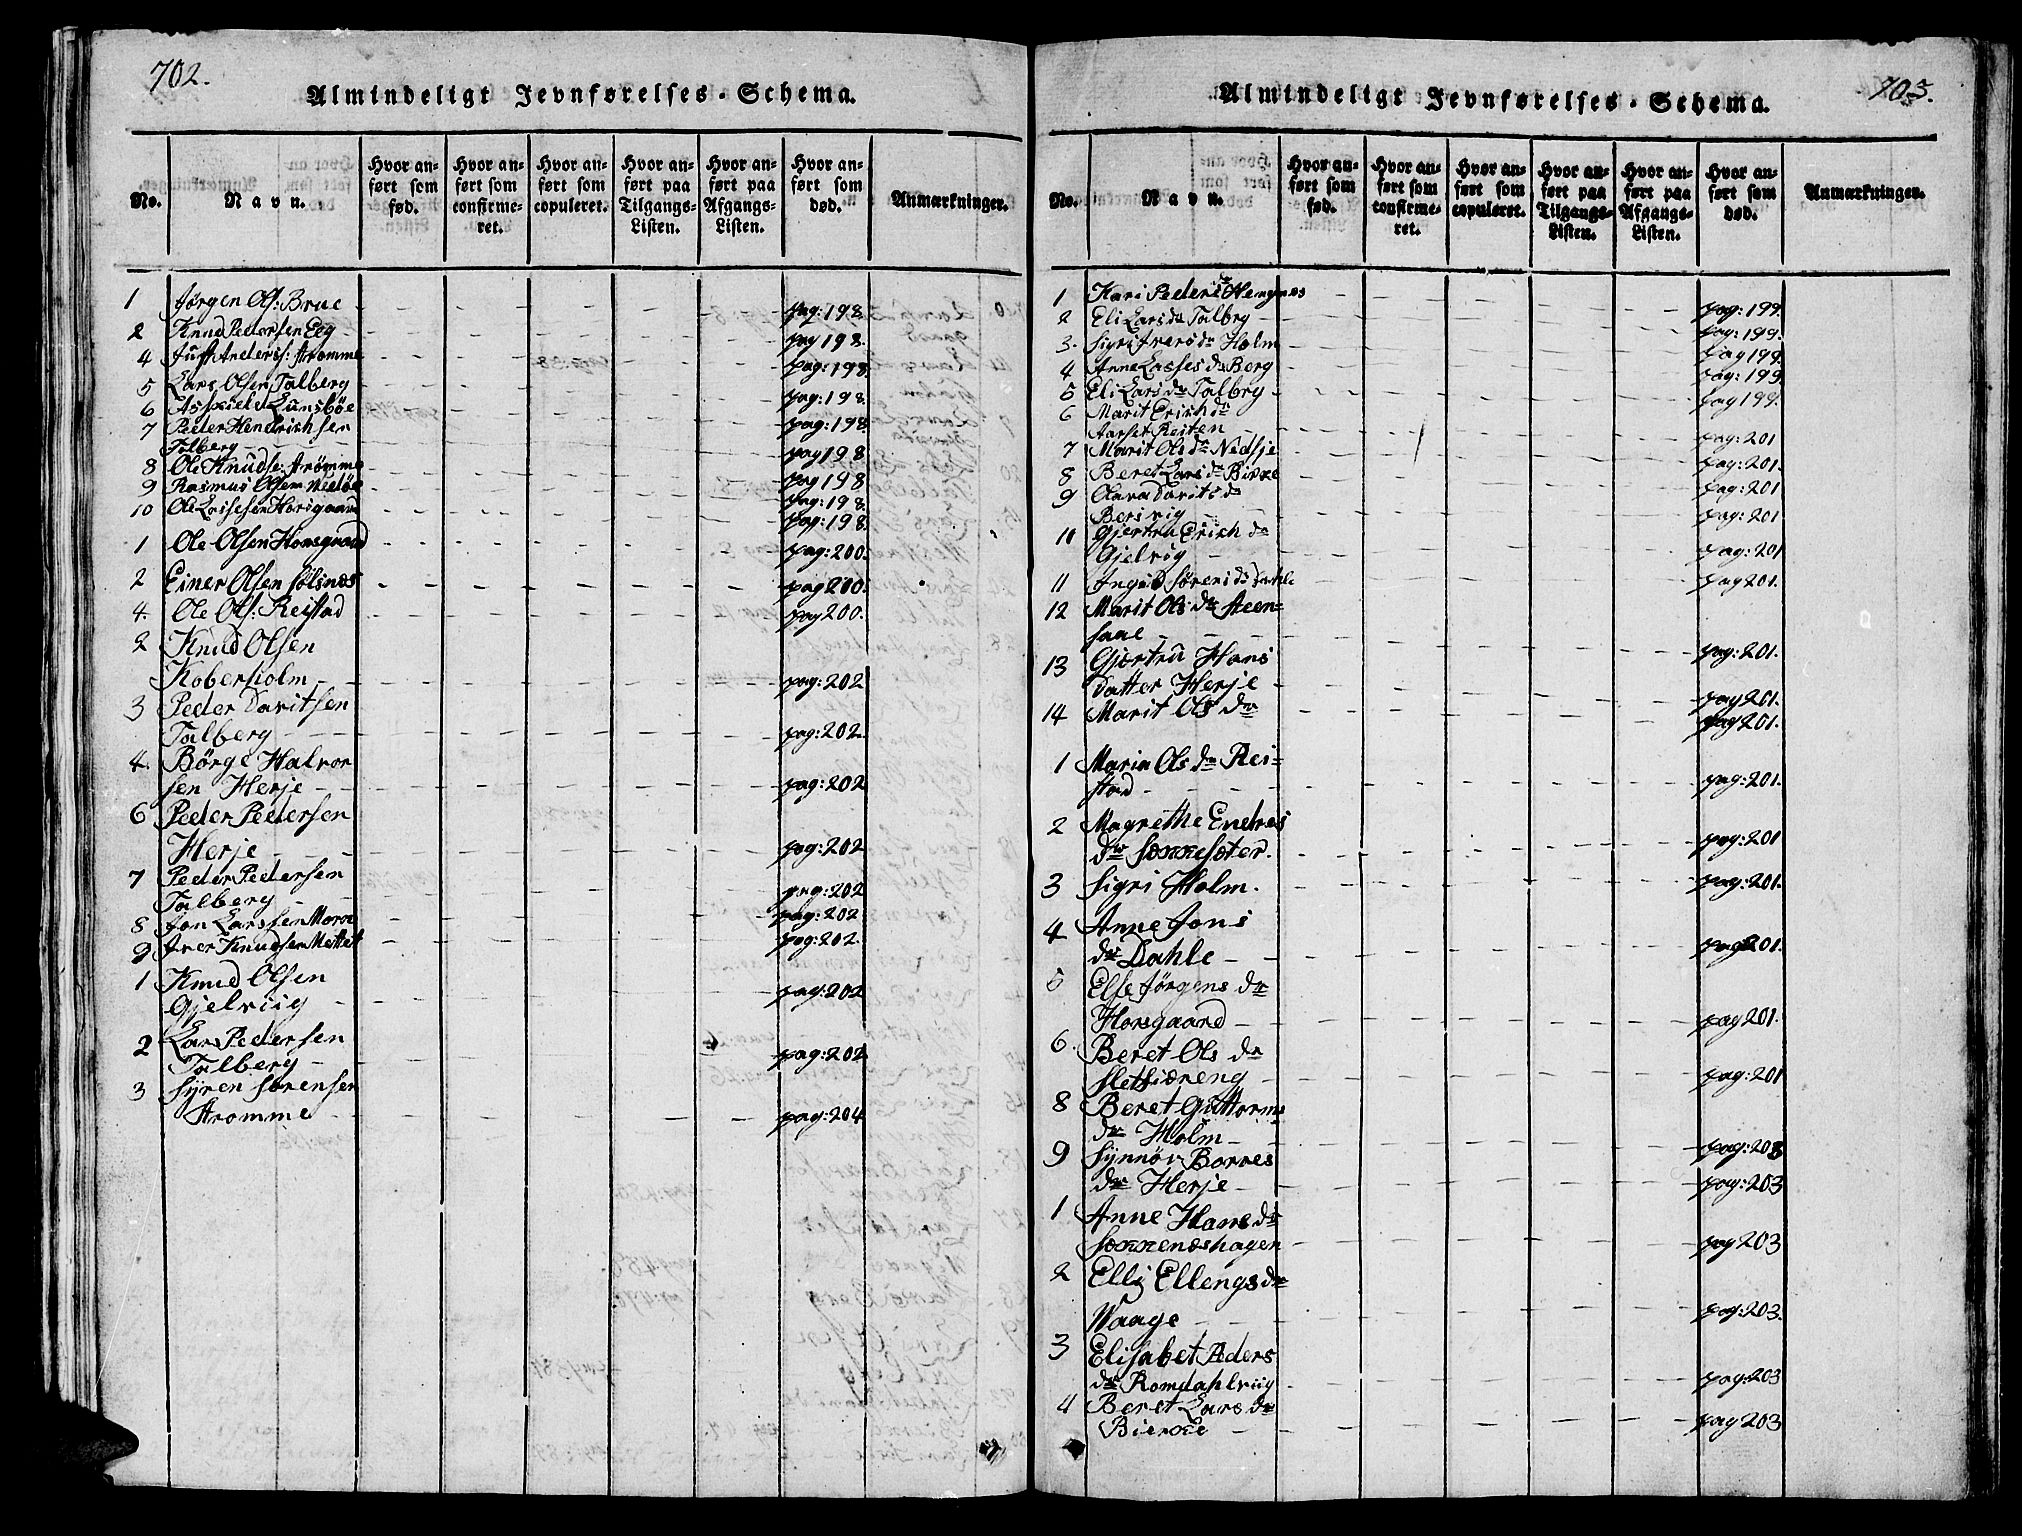 702.
Almindeligt Jevnførelses-Schema.
No.
Navn.
Hvor anført som fød.
Hvor anført som confirmeret.
Hvor anført som copuleret.
Hvor anført paa Tilgangs-Listen.
Hvor anført paa Afgangs-Listen.
Hvor anført som død.
Anmærkninger.
1 Jørgen Ols: Brue pag: 198
2 Knud Pedersen Eeg pag 198
4 Anderss: Strømme pag: 198
5 Lars Olsen Talberg pag: 198
6 Lunsbøe pag: 198
7 Peder Hendrichsen
Talberg pag 198
8 Ole Knuds: Strømme pag 198
9 Rasmus Olsen pag: 198
10 Ole Lassesen Horsgaard pag: 198
1 Ole Olsen Horsgaard pag: 200.
2 Einer Olsen Sølsnæs pag 200.
4. Ole Ols: Reistad pag 200.
2 Knud Olsen
Kobersholm pag: 202
3 Peder Davitsen
Talberg pag: 202
4. Börge Halvor
sen Herje pag: 202
6 Peder Pedersen
Herje pag: 202
7 Peder Pedersen
Talberg pag: 202
8 Jon Larssen pag: 202
9 Iver Knudsen pag: 202.
1 Knud Olsen
Gjelviig pag: 202
2 Lars Pedersen
Talberg pag: 202
3 Syren Sørensen
Stromme pag: 204
703.
Almindeligt Jevnførelses-Schema.
No.
Navn.
Hvor anført som fød.
Hvor anført som confirmeret.
Hvor anført som copuleret.
Hvor anført paa Tilgangs-Listen.
Hvor anført paa Afgangs-Listen.
Hvor anført som død.
Anmærkninger.
1 Kari Peders dr pag: 199.
2 Eli Lars dr Talbrg pag: 199.
3. Sigri Ivers dr Holm pag 199
4 Anne Lasses dr Berg pag: 199
5 Eli Lars dr Talbrg pag 199.
6 Marit Erich dr
Aarset Reiten pag: 201
7 Marit Ols dr pag: 201
8 Beret Lars dr pag: 201
9 Davits dr
pag: 201
10 Gjertru Erich dr
Gjelvig pag: 201
11 Sören dr pag 201.
12 Marit Ols dr Steen-
pag: 201.
13 Gjertru Hans
datter Herje pag 201.
14 Marit Ols dr pag 201.
1 Maria Ols dr Rei-
stad pag: 201.
2 Magrethe Endres
dr pag: 201
3 Sigri Holm. pag: 201.
4 Anne Jons
dr Dahle pag 201.
5 Else Jörgens dr
Horsgaard pag 201.
6. Beret Ols dr
pag: 201
8 Beret Guttorms
dr Holm pag: 203
9 Synnöv
dr Herje pag: 203
1 Anne Hans dr
pag 203
2 Elli Ellengs dr
Waage pag: 203.
3 Elisabet Peders
dr Romdahlviig pag: 203
4 Beret Lars dr
pag 203